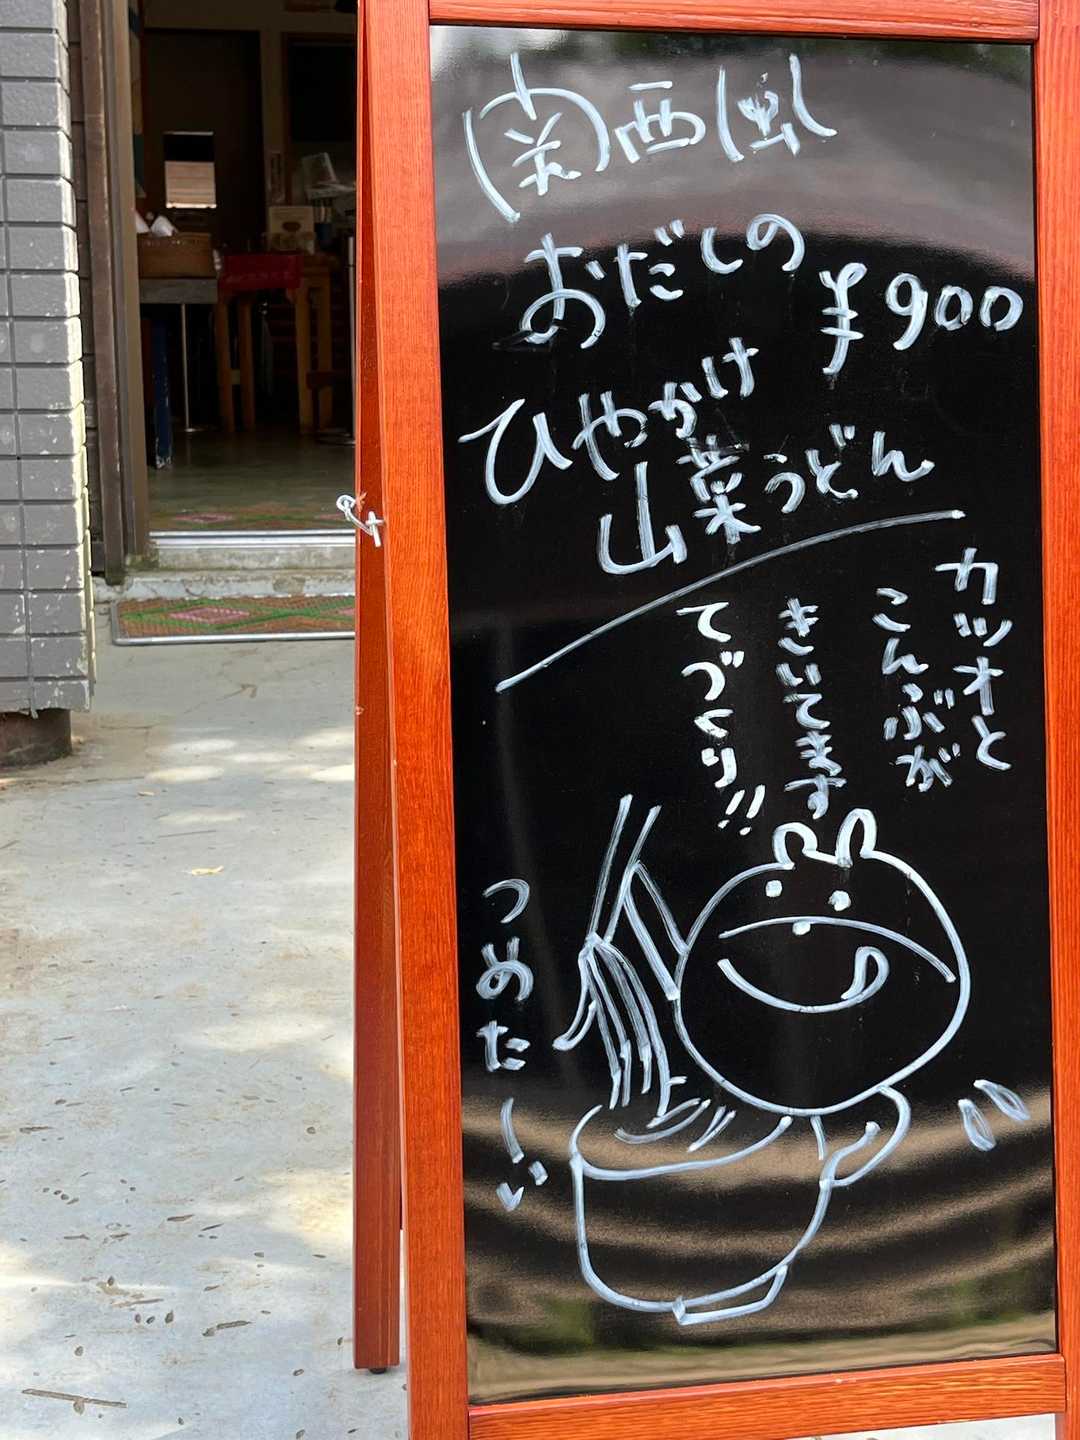 関西風
おだしの
¥900
ひやかけ
山菜うどん
カツオと
こんぶが
きいてます
てづくり!!
つめた
〜い